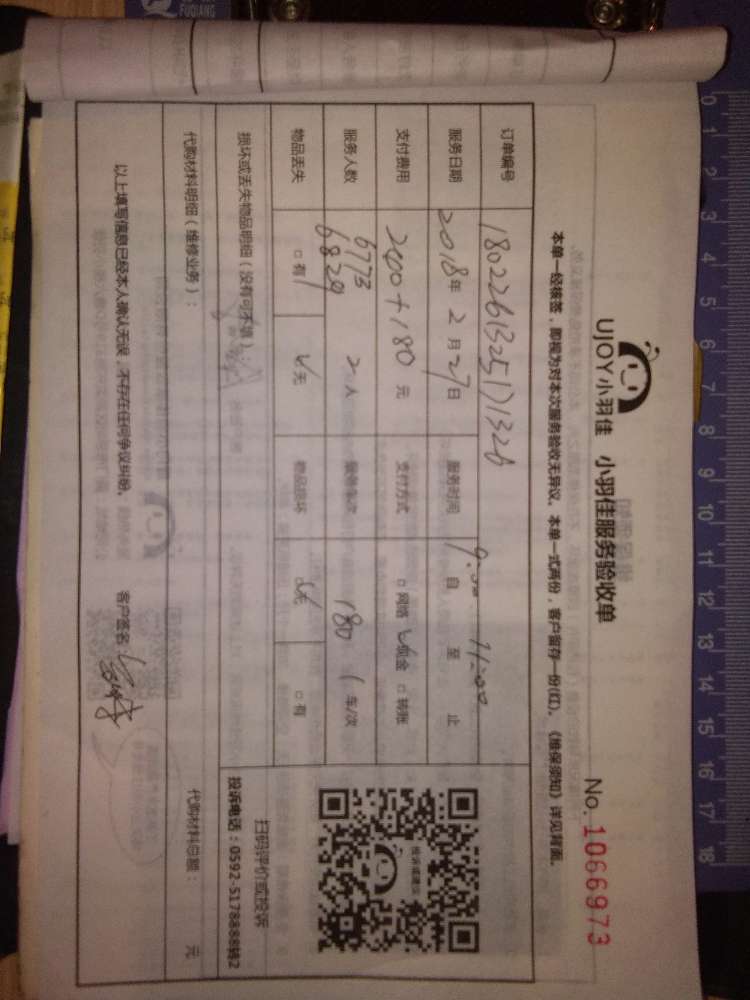 FUQIANG
UJOY小羽佳 小羽佳服务验收单
No. 1066973
本单一经核签，即视为对本次服务验收无异议。本单一式两份，客户留存一份(红)。《维保须知》详见背面。
订单编号 1802261325171326
服务日期 2018年 2月 27日 服务时间 自 至 11:00 止
支付费用 200+180 元 支付方式 □网络 ☑现金 □转账
服务人数 6773 6829 2人 服务车次 180 1车/次
物品丢失 □有 ☑无 物品损坏 ☑无 □有
投诉或建议
扫码评价或投诉
投诉电话：0592-5178888转2
损坏或丢失物品明细（没有可不填）：
代购材料明细（维修业务）： 代购材料总额： 元
以上填写信息已经本人确认无误，不存在任何争议纠纷。 客户签名：
0 1 2 3 4 5 6 7 8 9 10 11 12 13 14 15 16 17 18